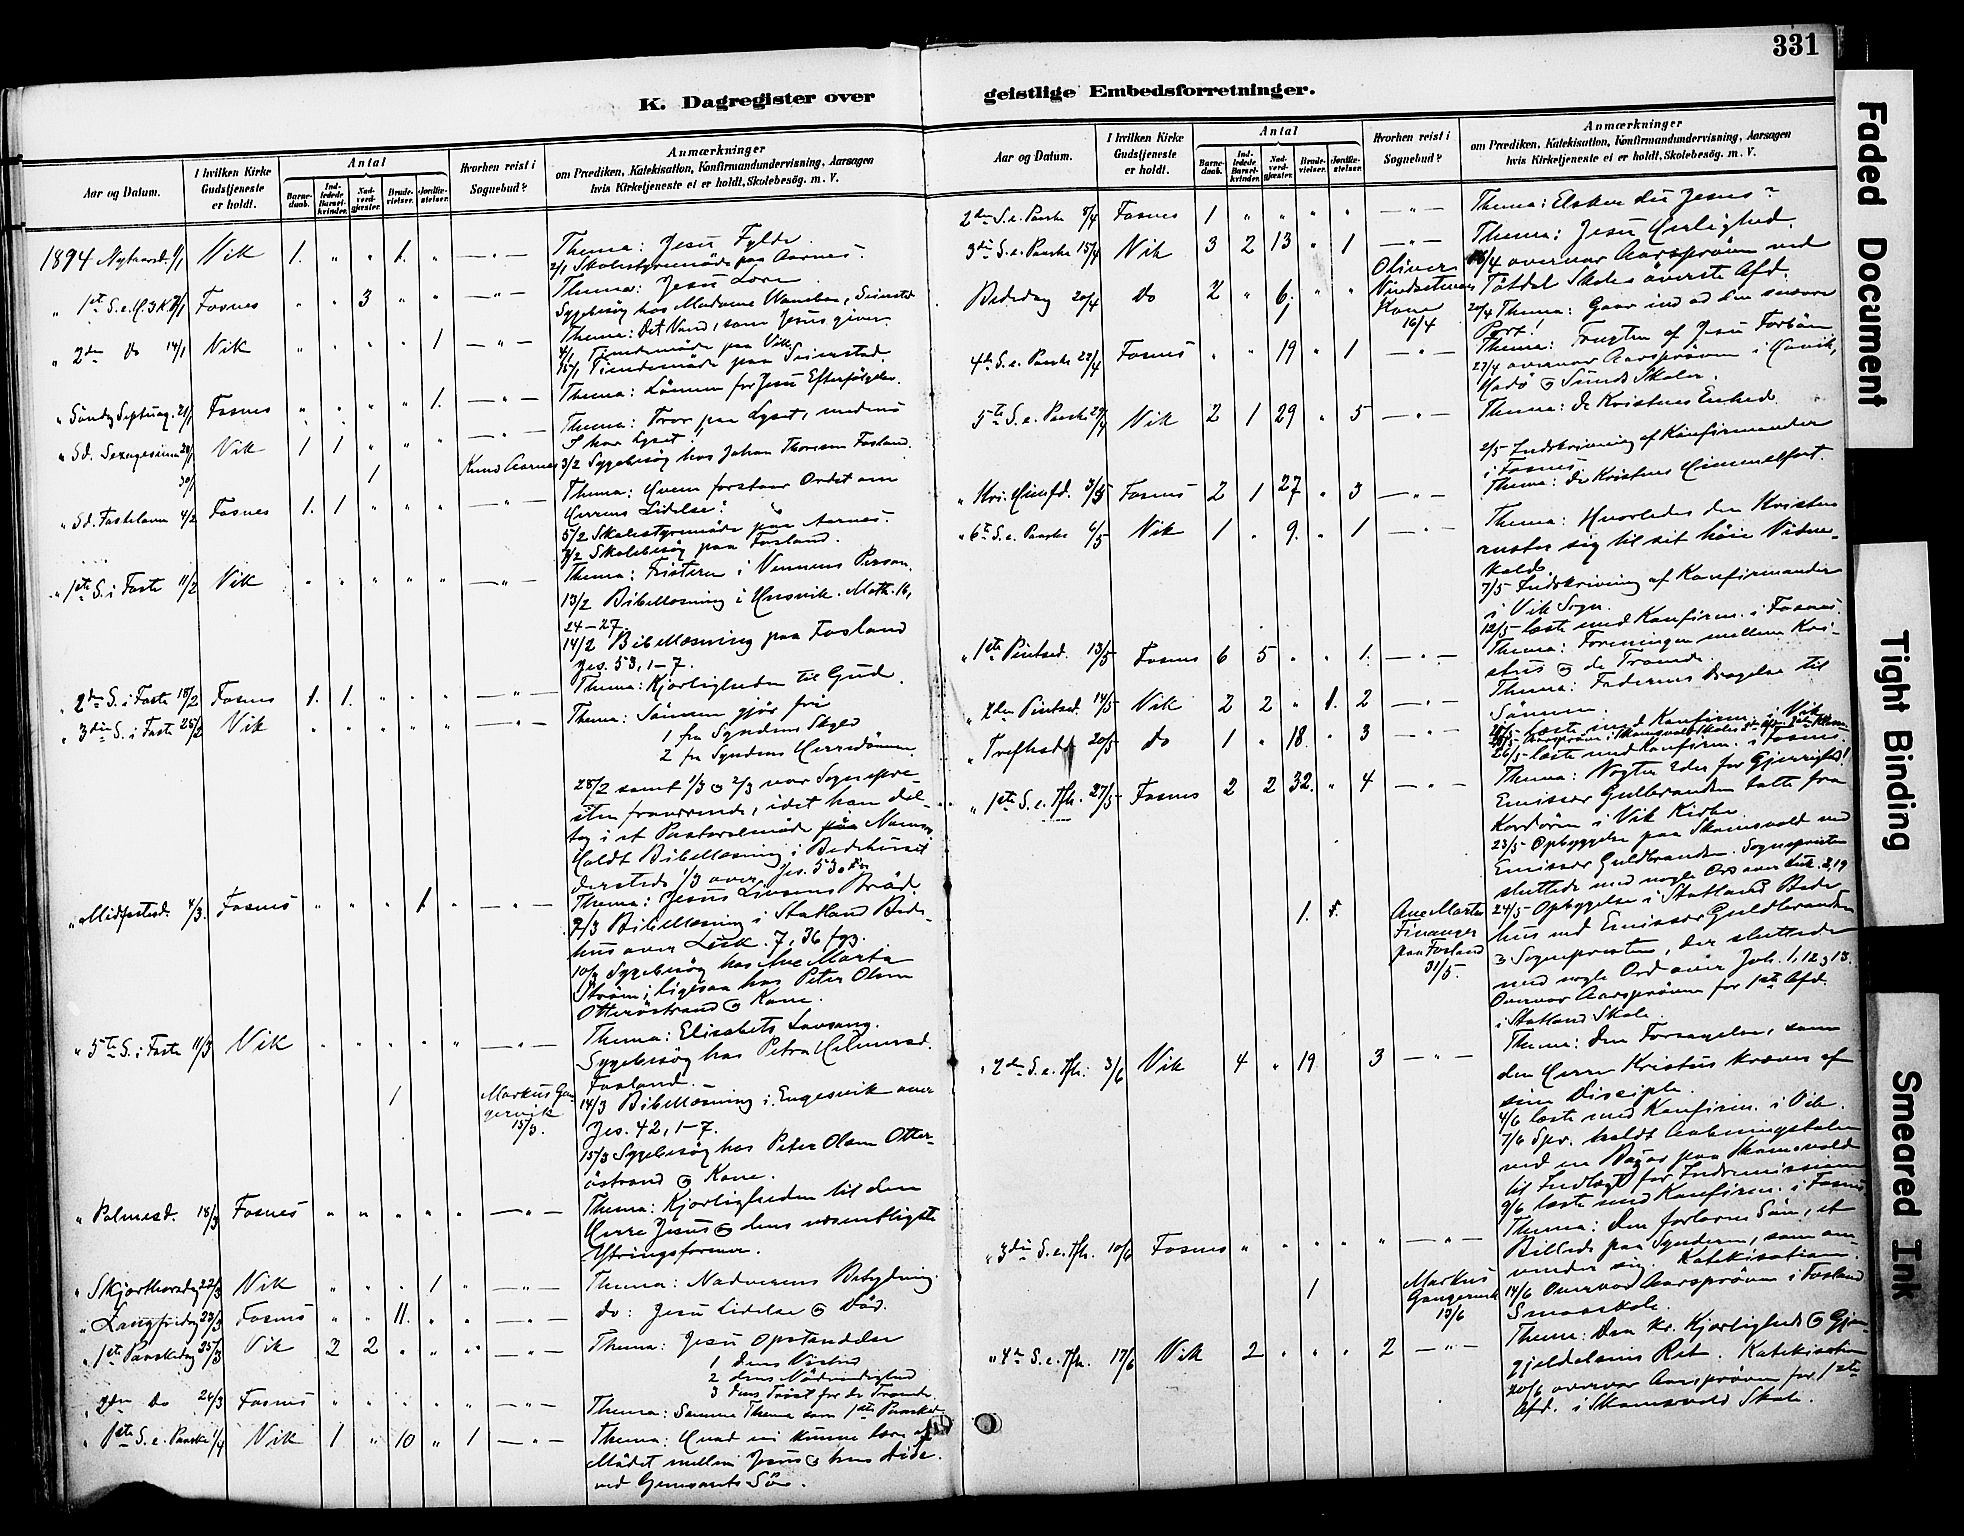 331
K. Dagregister over geistlige Embedsforretninger.
Aar og Datum.
I hvilken Kirke Gudstjeneste er holdt.
Antal
Barnedaab.
Indledede Barselkvinder.
Nadverdgjæster.
Brudevielser.
Jordfæstelser.
Hvorhen reist i Sognebud?
Anmærkninger
om Prædiken, Katekisation, Konfirmandundervisning, Aarsagen
hvis Kirketjeneste ei er holdt, Skolebesøg. m. V.
1894 Nytaarsd. 1/1 Vik 1. " " 1. " — " — Thema: Jesu Fylde.
2/1 Skolestyremøde paa Aarnes.
Fosnes " " 3 " " — " — Thema: Jesu
" 2den Do 14/1 Vik " " " " 1 — " — Thema: Det Vand, som Jesus giver
paa Vik
paa Seierstad.
" Søndag Septuag. 21/1 Fosnes " " " " 1. — " — Thema: Lønnen for Jesu Efterfølgelse.
" Sd. Sexagesima 28/1 Vik 1 1 " " " — " — Thema: Tror paa Lyset, medens
I har Lyset.
30/1 1 Knud Aarnes 3/2 Sygebesøg hos Johan Fosland.
" Sd. Fastelavn 4/2 Fosnes 1. 1 " " " — " — Thema: Hvem forstaar Ordet om
Herrens Lidelse?
5/2 Skolestyremøde paa Aarnes.
7/2 Skolebesøg paa Fosland.
" 1ste S. i Faste 11/2 Vik " " " " " — " — Thema: Fristeren i Vennens Person.
13/2 Bibellæsning i Matth. 16,
24-27.
14/2 Bibellæsning paa Fosland
Jes. 53, 1-7.
" 2den S. i Faste 18/2 Fosnes 1. 1. " " " — " — Thema: Kjærligheden til Gud.
" 3die S. i Faste 25/2 Vik " " " " " — " — Thema: Sønnen gjør fri
1 fra Syndens Skyld
2 fra Syndens Herredømme.
28/2 samt 1/3 og 2/3 var Sognepræ-
sten fraværende, idet han del-
tog i et Pastoralmøde paa
Holdt Bibellæsning i Bedehuset
dersteds 1/3 over Jes. 53
" Midfastesd. 4/3. Fosnes " " " 1. " — " — Thema: Jesus Livsens Brød.
Bibellæsning i Statland Bede-
hus over Luk. 7, 36 fgg.
10/3 Sygebesøg hos Ane Marta
Strøm; ligesaa hos Peter Olsen
Otterøstrand og Kone.
" 5te S. i Faste 11/3 Vik " " " " " — " — Thema: Elisabets Lovsang.
Sygebesøg hos Petra
Fosland.
1 Markus Gan-
gervik
15/3.
14/3 Bibellæsning i Engesvik over
Jes. 42, 1-7.
15/3 Sygebesøg hos Peter Olsen Otter-
østrand og Kone.
" Palmesd. 18/3 Fosnes " " " " " — " — Thema: Kjærligheden til den
Herre Jesus og dens væsentligste
Ytringsformer.
" Skjærthorsdag 22/3 Vik " " " 1 " — " — Thema: Nadverens Betydning.
" Langfredag 23/3 Fosnes " " 11. " " — " — do: Jesu Lidelse og Død.
" 1ste Paaskedag 25/3 Vik 2 2 " " " — " — Thema: Jesu Opstandelse
1 dens
2 dens Nødvendighed
3 dens Trøst for de Troende.
" 2den Do Fosnes " " " " " — " — Thema: Samme Thema som 1ste Paaskedag
" 1ste S. e. Paaske 1/4 Vik 1 " 10 " 1 — " — Thema: Hvad vi kunne lære af
Mødet mellem Jesus og hans
ved Sø.
2den S. e. Paaske 8/4 Fosnes 1 " " " " — " — Thema: Elsker du Jesus?
3die S. e. Paaske 15/4 Vik 3 2 13 " 1 — " — Thema: Jesu Herlighed.
overvar Aarsprøven ved
Tøtdal Skoles øverste Afd.
Bededag 20/4 do 2 " 6. " "
Oliver
Kone
16/4
20/4 Thema: Gaar ind ad den snævre
Port!
4de S. e. Paaske 22/4 Fosnes " " 19 " 1 — " — Thema: Frugten af Jesu Forbøn
27/4 overvar Aarsprøven i
og Sunds Skoler.
5te S. e. Paaske 29/4 Vik 2 1 29 " 5 — " — Thema: De Kristnes Enhed.
2/5 Indskrivning af Konfirmander
i Fosnes.
" Kri. Himfd. 3/5 Fosnes 2 1 27 " 3 — " — Thema: De Kristnes Himmelfart.
" 6te S. e. Paaske 6/5 Vik 1 " 9. " 1 — " — Thema: Hvorledes den Kristne
ruster sig til sit høie Vidne-
kald.
7/5 Indskrivning af Konfirmander
i Vik Sogn.
12/5 læste med Konfirm. i Fosnes.
" 1ste Pintsed. 13/5 Fosnes 6 5 " " 1. — " — Thema: Foreningen mellem Kri-
stus og de Troende.
" 2den Pintsed. 14/5 Vik 2 2 " 1. 2 — " — Thema: Faderens Dragelse til
Sønnen.
" Trefhedsf. 20/5 do 1 " 18. " 3 — " — læste med Konfirm. i Vik.
26/5 læste med Konfirm. i Fosnes.
" 1ste S. e. Tfh. 27/5 Fosnes 2 2 32. " 4 — " — Thema: Vogter Eder for Gjerrighed!
Emissær Gulbrandsen talte fra
Kordøren i Vik Kirke.
23/5 Opbyggelse paa Skomsvold ved
Emissær Guldbrandsen. Sognepræsten
sluttede med nogle Ord over Luk. 2, 19
1. 1.
Ane Marta
Finanger
paa Fosland
31/5.
24/5 Opbyggelse i Statland Bede-
hus ved Emissær Guldbrandsen
og Sognepræsten, der sluttede
med nogle Ord over Joh. 1, 12 og 13.
Overvar Aarsprøven for 1ste Afd.
i Statland Skole.
" 2den S. e. Tfh. 3/6 Vik 4 " 19 3 — " — Thema: Den Forsagelse, som
den Herre Kristus kræver af
sine Disciple.
4/6 læste med Konfirm. i Vik.
7/6 Spr. holdt Aabningstalen
ved en Bazar paa Skomsvold
til Indtægt for Indremissionen
9/6 læste med Konfirm. i Fosnes
" 3die S. e. Tfh. 10/6 Fosnes " " " " " — " — Thema: Den fortabte Søn, et
Billede paa Synderen, som om-
vender sig. Katekisation.
1
Markus
Gangervik
13/6
14/6 Overvar Aarsprøven i Fosland
Smaaskole.
" 4de S. e. Tfh. 17/6 Vik 2 " " " 2 — " — Thema: Den kr. Kjærligheds og Gjen-
gjældelsens Ret. Katekisation
20/6 overvar Aarsprøven for 1ste
Afd. i Skomsvold Skole.
Faded Document
Tight Binding
Smeared Ink